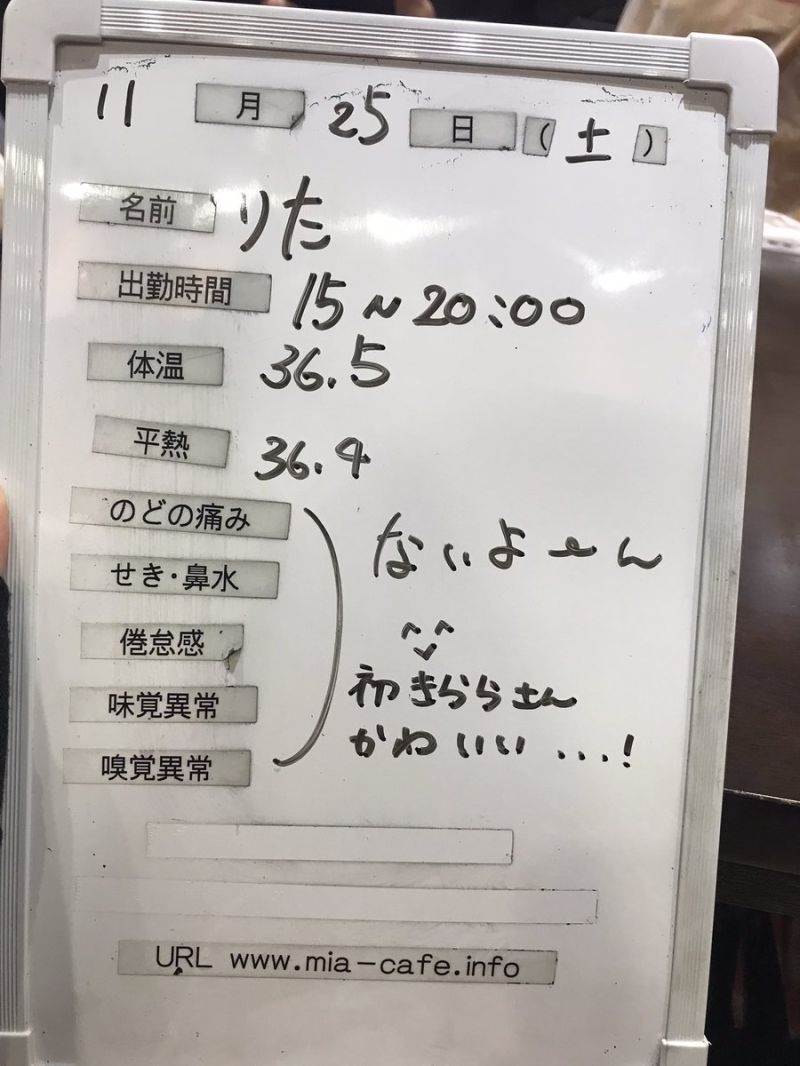 11月25日(土)
名前 りた
出勤時間 15~20:00
体温 36.5
平熱 36.4
のどの痛み
ないよーん
せき・鼻水
倦怠感
^^
味覚異常
初きららさん
かわいい...!
嗅覚異常
URL www.mia-cafe.info